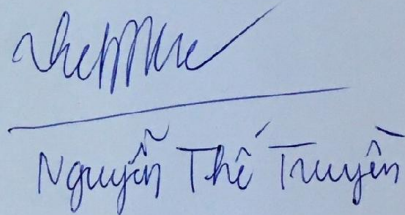 Nguyễn Thế Truyền